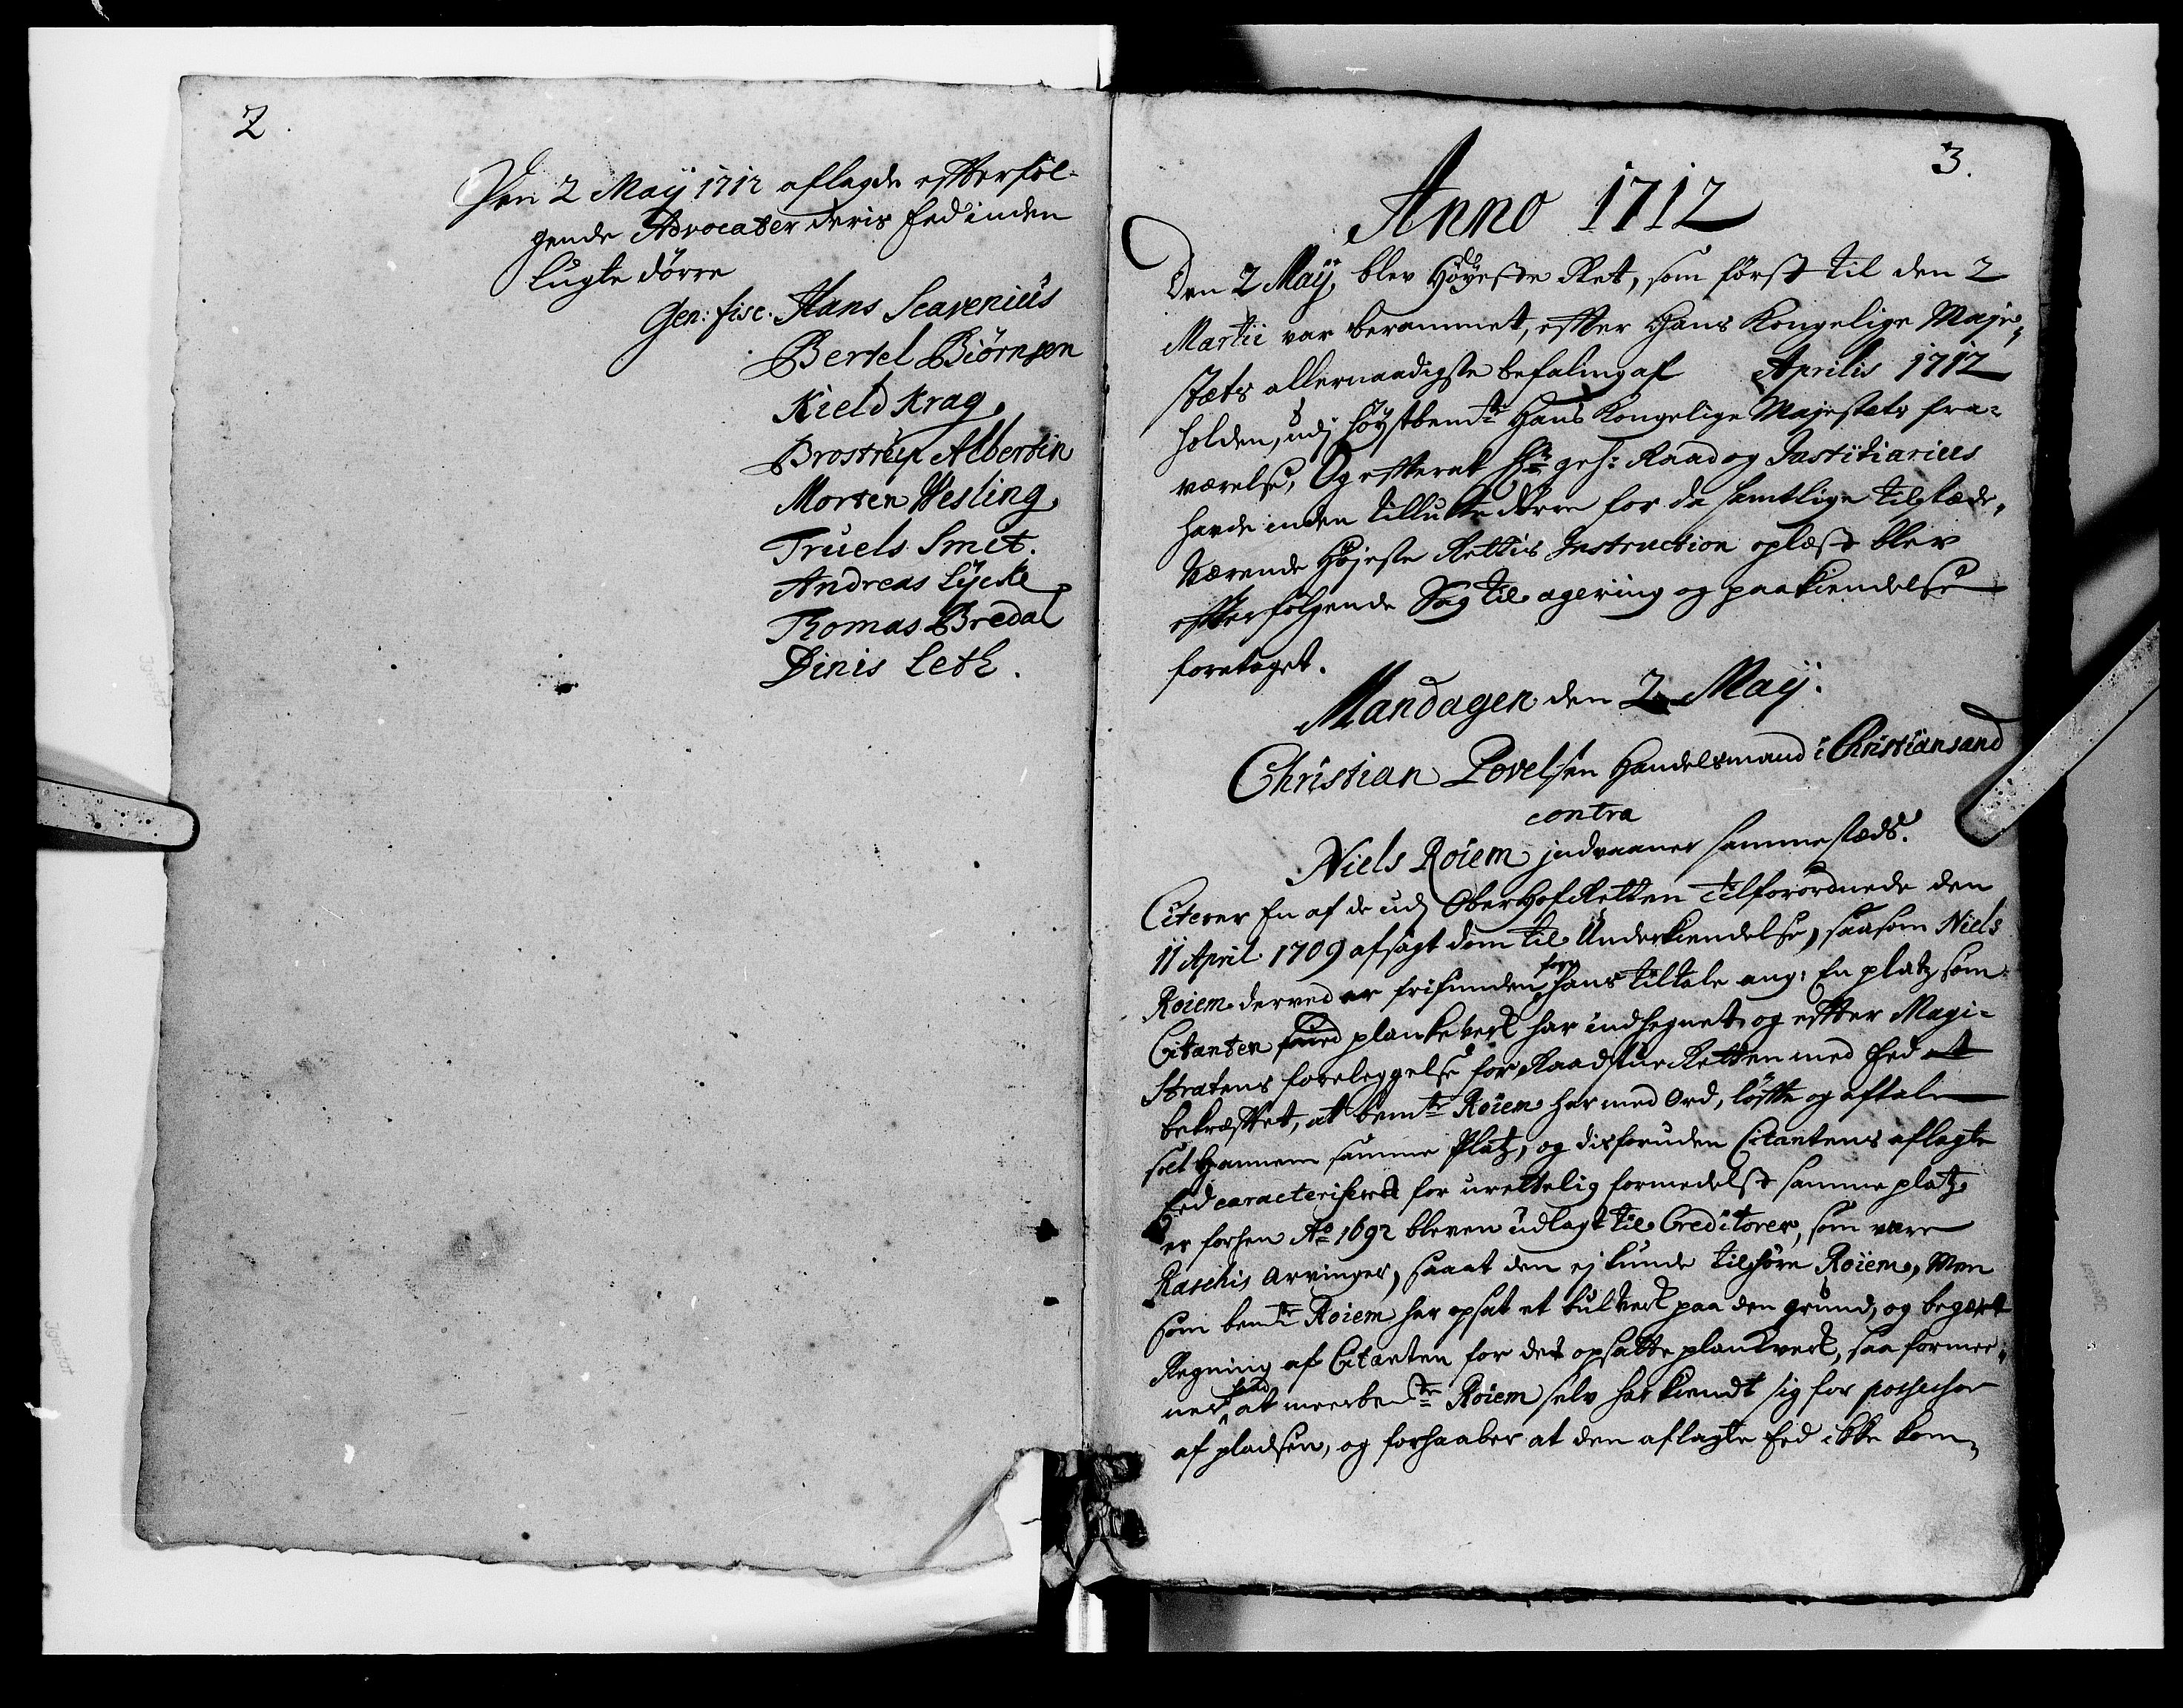 2.
Den 2 Maij 1712 aflagde effterföl-
gende Advocater deris Eed inden
lugte dörre
Gen: fisc. Hans Scavenius
Bertel Biörnsen
Kield Krag
Brostrup Albertin
Morten Wesling
Truels Smit.
Andreas Lycke
Thomas Bredal
Dinis Leth.
3.
Anno 1712
Den 2 Maij, blev Höyeste Ret, som först til den 2
Martii var berammet, effter Hans Kongelige Maje,,
stæts allernaadigste befaling af Aprilis 1712
holden, udj höystbemte Hans Kongelige Majestets fra-
værelse, Og effterat Hr geh: Raad og Justitiarius
hafde inden tillukte dörre for da samtlige tilstæde,,
værende Höjeste Rettis Instruction oplæst blev
effterfölgende Sag til agering og paakiendelse
foretaget.
Mandagen den 2 Maij.
Christian Povelsen Handelsmand i Christiansand
contra
Niels Roiem jndvaaner sammestæds.
Citerer En af de udj OberHofRetten Tilforordnede den
11 April 1709 afsagt dom til Underkiendelse, saasom Niels
Roiem derved er frifunden for hans tiltale ang: En platz som
Citanten med plankeverk har indhegnet og effter Magi-
stratens foreleggelse for Raadstue Retten med Eed
bekræfftet, at bemte Roiem har med Ord, löffte og aftale
solt Hannem samme Platz, og disforuden Citantens aflagte
Eed caracteriseret for urettelig formedelst samme platz
er forhen Ao 1692 bleven udlagt til Creditorer, som vare
Raschis Arvinger, saaat den ej kunde tilhöre Roiem, Men
som bemte Roiem har opsat et bulverk paa den grund, og begært
Regning af Citanten for det opsatte plankverk, saa formee,,
ner hand at meerbemte Roiem selv har kiendt sig for possessor
af pladsen, og forhaaber at den aflagte Eed ikke kom,,